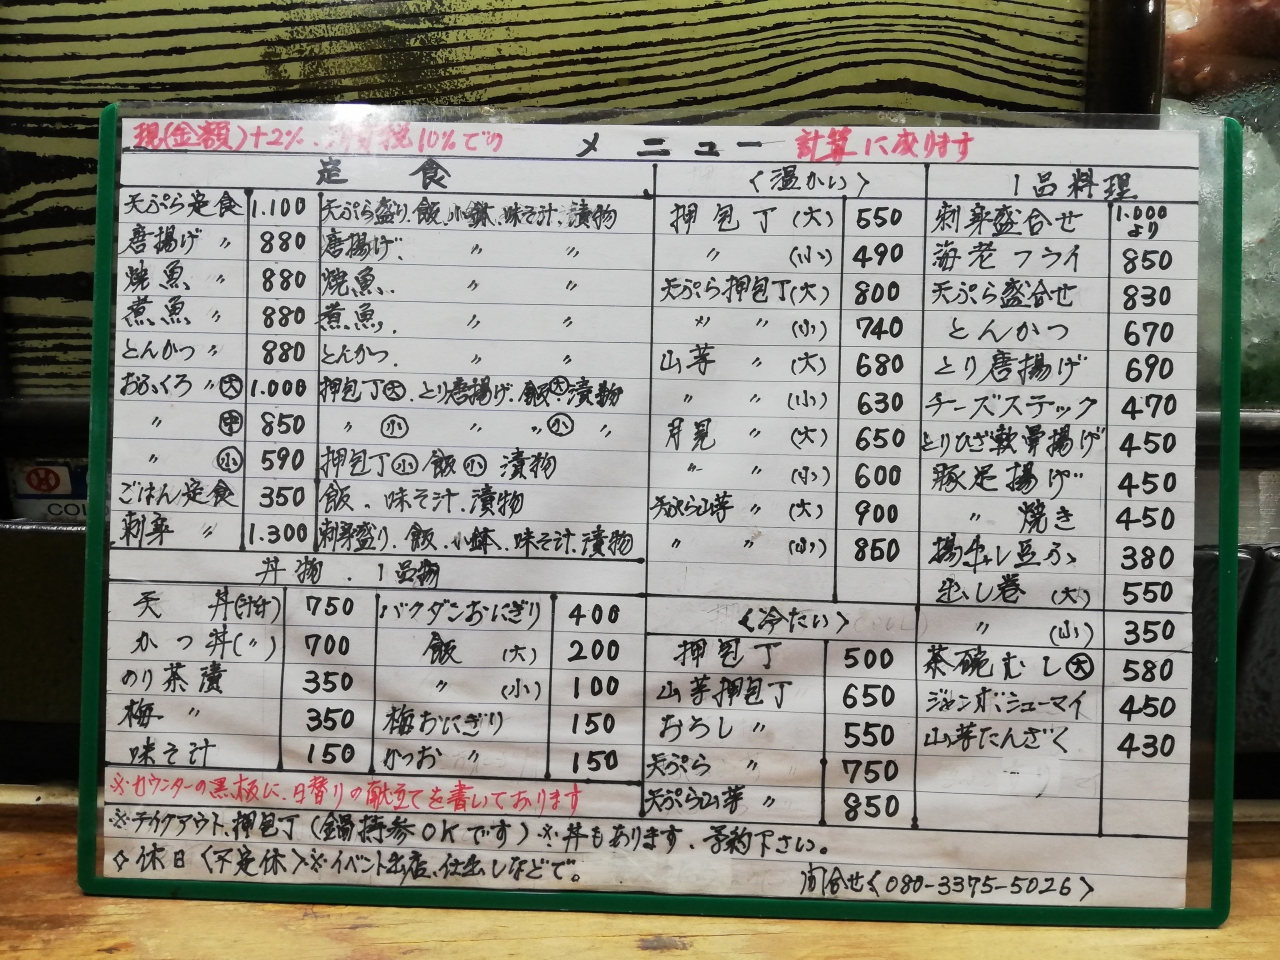 現(金額)+2%.消費税10%での メニュー 計算になります
定 食
天ぷら定食 1.100 天ぷら盛り.飯.小鉢.味そ汁.漬物
唐揚げ 〃 880 唐揚げ. 〃 〃
焼魚 〃 880 焼魚. 〃 〃
煮魚 〃 880 煮魚. 〃 〃
とんかつ 〃 880 とんかつ. 〃 〃
おふくろ 〃 大 1.000 押包丁大.とり唐揚げ.飯大漬物
〃 中 850 〃 小 〃 〃小 〃
〃 小 590 押包丁小飯小漬物
ごはん定食 350 飯.味そ汁.漬物
刺身 〃 1.300 刺身盛り.飯.小鉢.味そ汁.漬物
丼物.1品物
天 丼(汁付) 750 バクダンおにぎり 400
かつ丼(〃) 700 飯 (大) 200
のり茶漬 350 〃 (小) 100
梅 〃 350 梅おにぎり 150
味そ汁 150 かつお 〃 150
<温かい>
押包丁(大) 550
〃 (小) 490
天ぷら押包丁(大) 800
〃 〃 (小) 740
山芋 〃 (大) 680
〃 〃 (小) 630
月見 〃 (大) 650
〃 〃 (小) 600
天ぷら山芋 〃 (大) 900
〃 〃 (小) 850
<冷たい>
押包丁 500
山芋押包丁 650
おろし 〃 550
天ぷら 〃 750
天ぷら山芋 〃 850
1品料理
刺身盛合せ 1.000より
海老フライ 850
天ぷら盛合せ 830
とんかつ 670
とり唐揚げ 690
チーズステック 470
とりひざ軟骨揚げ 450
豚足揚げ 450
〃 焼き 450
揚げだし豆ふ 380
出し巻 (大) 550
〃 (小) 350
茶碗むし大 580
ジャンボシューマイ 450
山芋たんざく 430
※カウンターの黒板に、日替りの献立てを書いております
※テイクアウト、押包丁(鍋持参OKです)※丼もあります、予約下さい。
◇休日<不定休>※イベント出店、仕出しなどで。
問合せ<080-3375-5026>